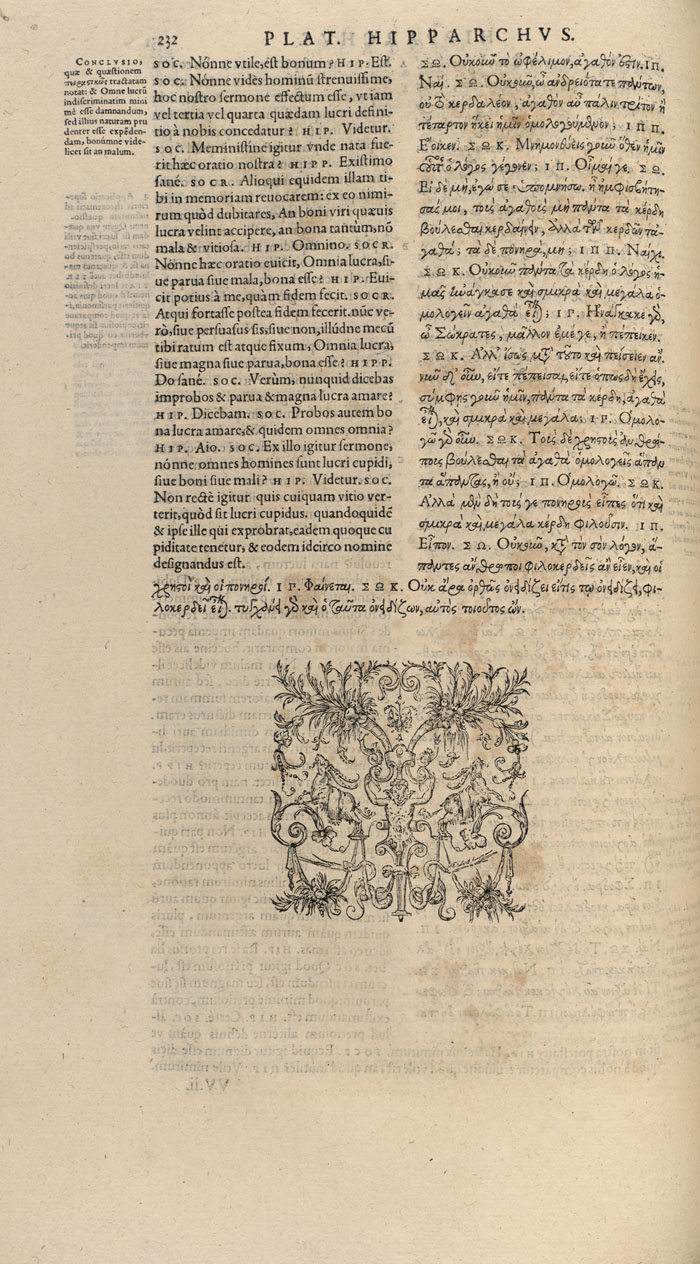 232 PLAT. HIPPARCHVS.
CONCLVSIO,
quæ & quæstionem
tractatam
notat: & Omne lucrũ
indiscriminatim mini
mè esse damnandum,
sed illius naturam pru
denter esse expẽden-
dam, bonumne vide-
licet sit an malum.
SOC. Nónne vtile, est bonum? HIP. Est.
SOC. Nónne vides hominũ strenuissime,
hoc nostro sermone effectum esse, vt iam
vel tertia vel quarta quædam lucri defini-
tio à nobis concedatur? HIP. Videtur.
SOC. Meministine igitur vnde nata fue-
rit hæc oratio nostra? HIPP. Existimo
sané. SOCR. Alioqui equidem illam ti-
bi in memoriam reuocarem: ex eo nimi-
rum quòd dubitares, An boni viri quæuis
lucra velint accipere, an bona tantum, nõ
mala & vitiosa. HIP. Omnino. SOCR.
Nónne hæc oratio euicit, Omnia lucra, si-
ue parua siue mala, bona esse? HIP. Eui-
cit potius à me, quàm fidem fecit. SOCR.
Atqui fortasse postea fidem fecerit. nũc ve-
rò, siue persuasus sis, siue non, illúdne mecũ
tibi ratum est atque fixum, Omnia lucra,
siue magna siue parua, bona esse? HIPP.
Do sané. SOC. Verùm, nunquid dicebas
improbos & parua & magna lucra amare?
HIP. Dicebam. SOC. Probos autem bo
na lucra amare, & quidem omnes omnia?
HIP. Aio. SOC. Ex illo igitur sermone,
nónne omnes homines sunt lucri cupidi,
siue boni siue mali? HIP. Videtur. SOC.
Non rectè igitur quis cuiquam vitio ver-
terit, quòd sit lucri cupidus. quandoquidẽ
& ipse ille qui exprobrat, eadem quoque cu
piditate tenetur, & eodem idcirco nomine
designandus est.
ΣΩ. Οὐκοῦν τὸ ὠφέλιμον, ἀγαθόν ἐστιν. ΙΠ.
Ναί. ΣΩ. Οὐκοῦν, ὦ ἀνδρειότατε πάντων,
οὐ τὸ κερδαλέον, ἀγαθὸν αὖ πάλιν τρίτον ἢ
τέταρτον ἥκει ἡμῖν ὁμολογούμενον; ΙΠΠ.
Ἔοικεν. ΣΩΚ. Μνημονεύεις γοῦν ὅθεν ἡμῖν
οὗτος ὁ λόγος γέγονεν; ΙΠ. Οἶμαί γε. ΣΩ.
Εἰ δὲ μή, ἐγώ σε ὑπομνήσω. ἠμφισβήτη-
σάς μοι, τοὺς ἀγαθοὺς μὴ πάντα τὰ κέρδη
βούλεσθαι κερδαίνειν, ἀλλὰ τῶν κερδῶν τἀ-
γαθά; τὰ δὲ πονηρά, μή; ΙΠΠ. Ναίχι.
ΣΩΚ. Οὐκοῦν πάντα τὰ κέρδη ὁ λόγος ἡ-
μᾶς ἠνάγκασε καὶ σμικρὰ καὶ μεγάλα ὁ-
μολογεῖν ἀγαθὰ εἶναι; ΙΡ. Ἠνάγκακε γὰρ,
ὦ Σώκρατες, μᾶλλον ἐμέ γε, ἢ πέπεικεν.
ΣΩΚ. Ἀλλ' ἴσως μετὰ τοῦτο καὶ πείσειεν ἄν.
νῦν δ' οὖν, εἴτε πέπεισαι, εἴτε ὁπωσδὴ ἔχεις,
σύμφῃς γοῦν ἡμῖν, πάντα τὰ κέρδη, ἀγαθὰ
εἶναι, καὶ σμικρὰ καὶ μεγάλα; ΙΡ. Ὁμολο-
γῶ γὰρ οὖν. ΣΩΚ. Τοὺς δὲ χρηστοὺς ἀνθρώ-
πους βούλεσθαι τὰ ἀγαθὰ ὁμολογεῖς ἅπαν
τα ἅπαντας, ἢ οὔ; ΙΠ. Ὁμολογῶ. ΣΩΚ.
Ἀλλὰ μὲν δὴ τούς γε πονηροὺς εἶπες ὅτι καὶ
σμικρὰ καὶ μεγάλα κέρδη φιλοῦσιν. ΙΠ.
Εἶπον. ΣΩ. Οὐκοῦν, κατὰ τὸν σὸν λόγον, ἅ-
παντες ἄνθρωποι φιλοκερδεῖς ἂν εἶεν, καὶ οἱ
χρηστοὶ καὶ οἱ πονηροί. ΙΡ. Φαίνεται. ΣΩΚ. Οὐκ ἄρα ὀρθῶς ὀνειδίζει εἴ τίς τῳ ὀνειδίζει, φι-
λοκερδεῖ εἶναι. τυγχάνει γὰρ καὶ ὁ ταῦτα ὀνειδίζων, αὐτὸς τοιοῦτος ὤν.